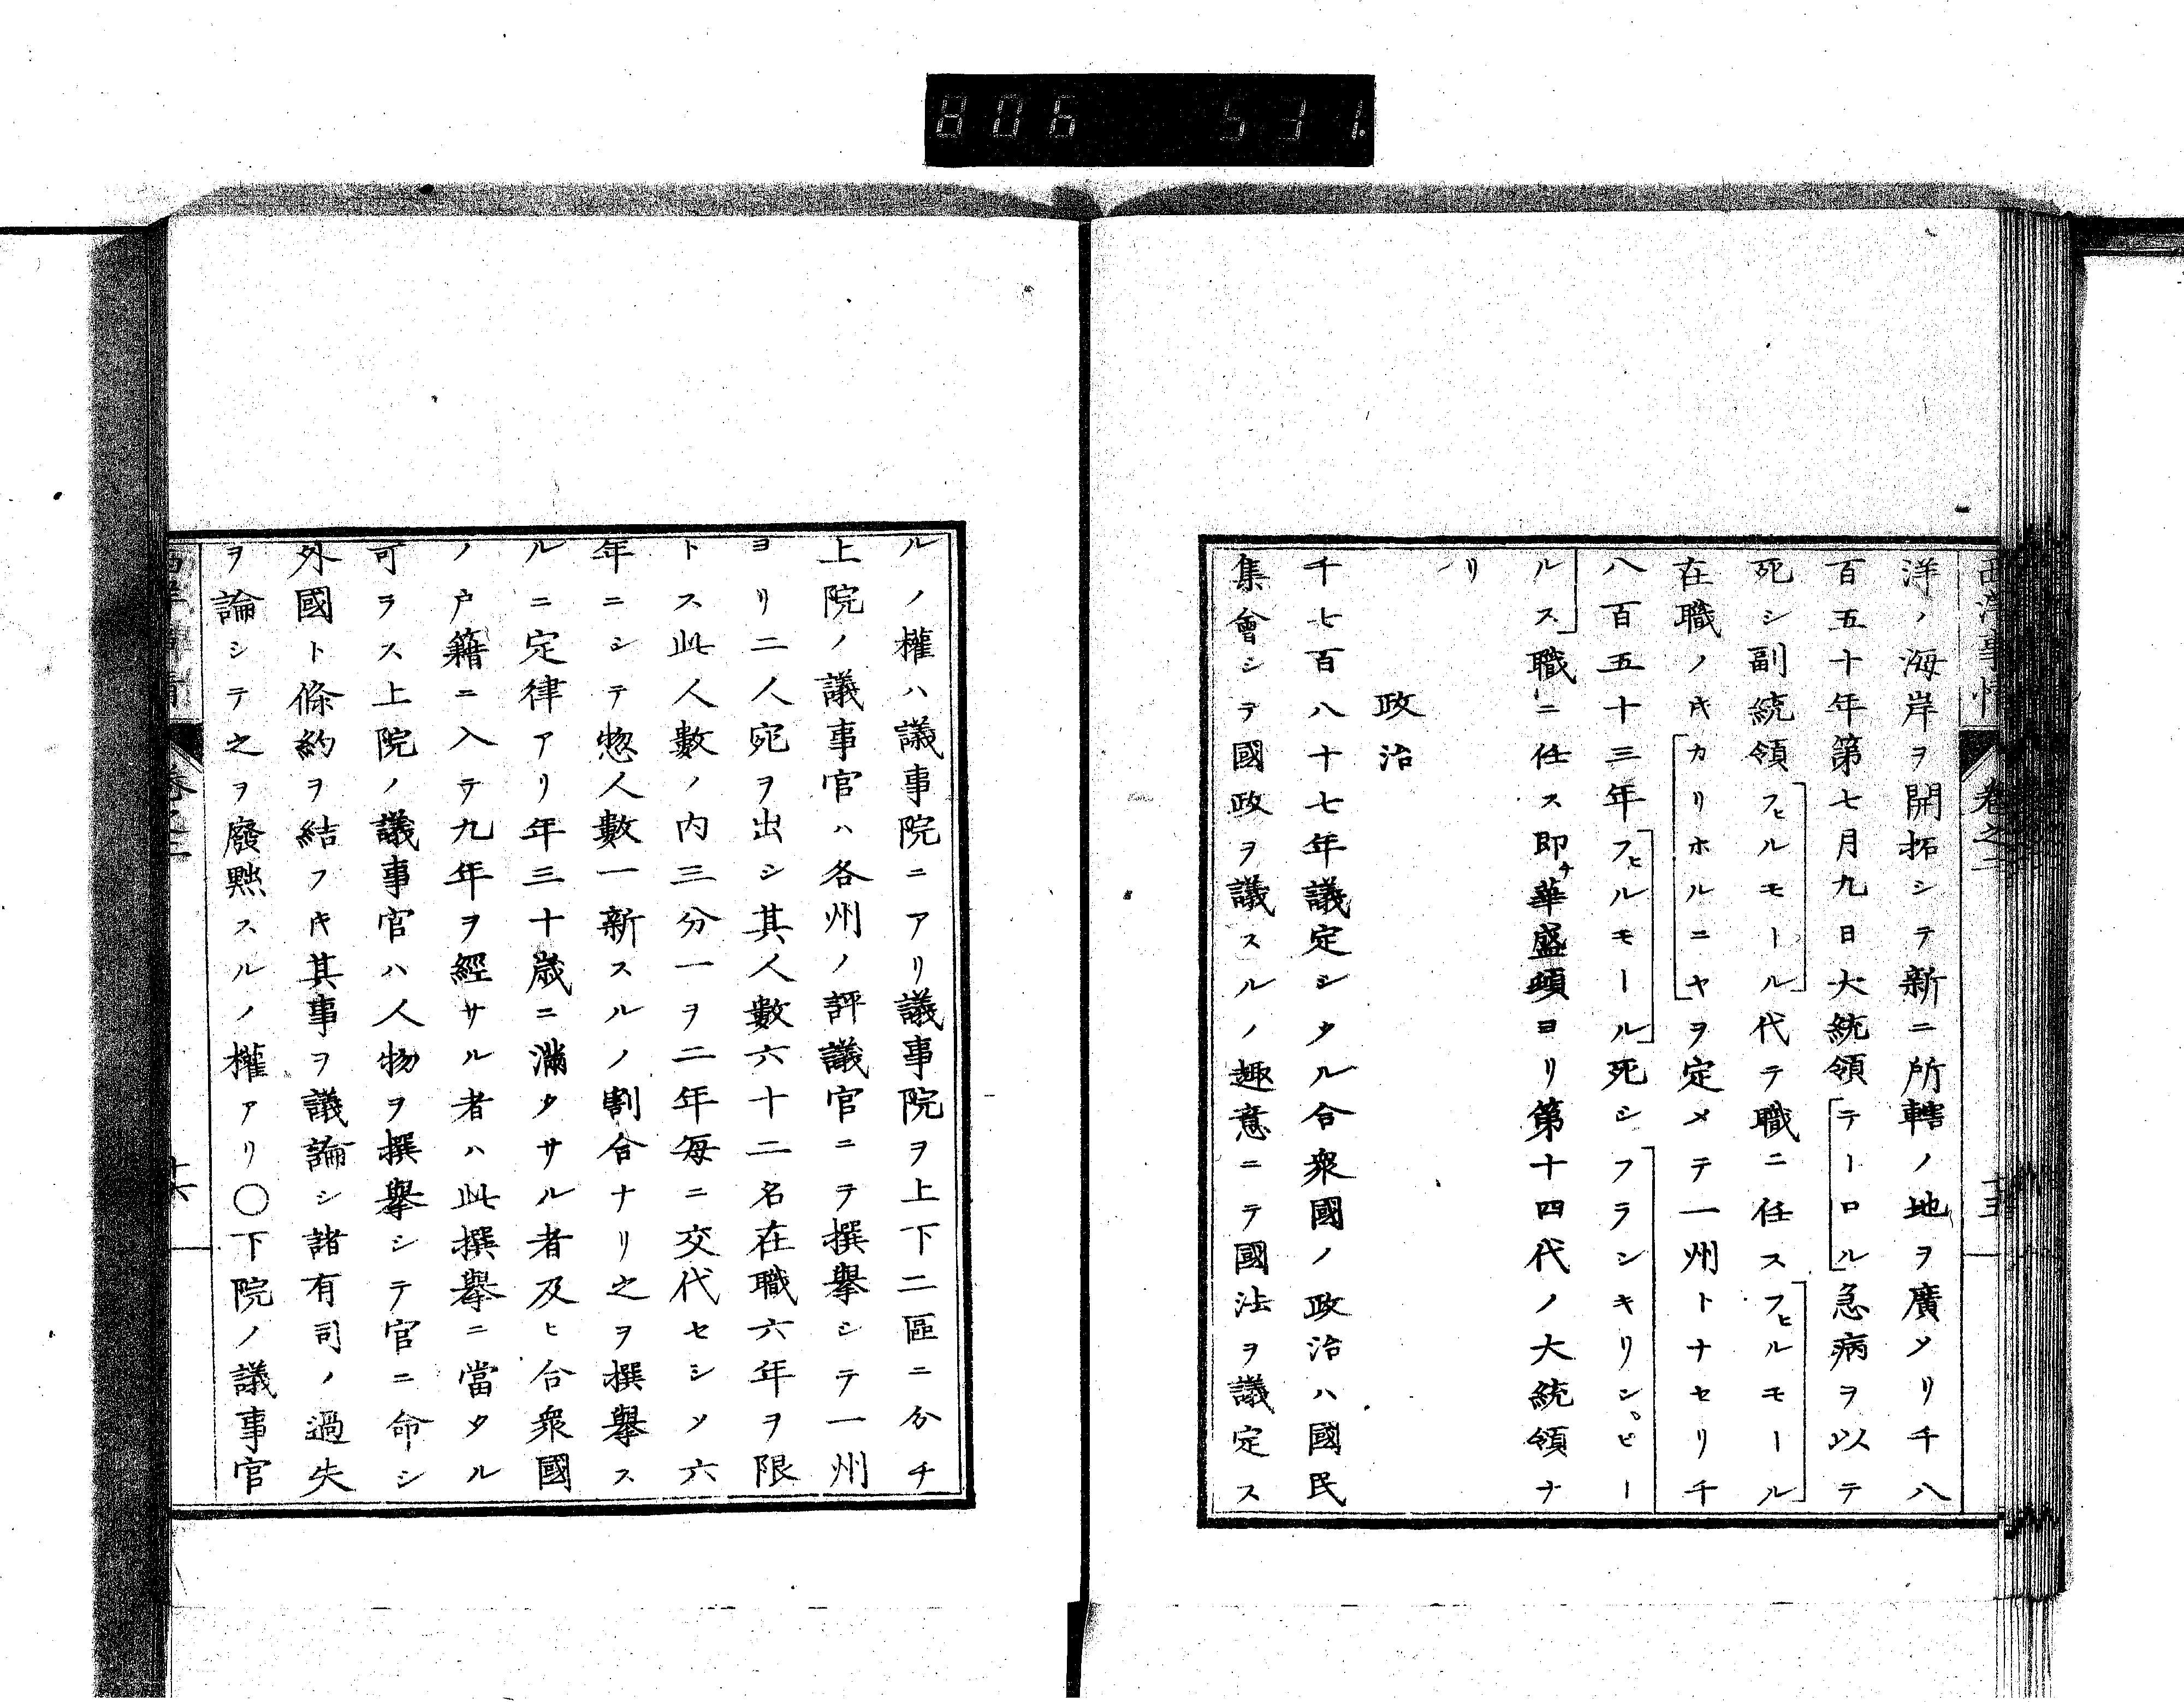 806 531.
西洋事情 卷之二 十五
洋ノ海岸ヲ開拓シテ新ニ所轄ノ地ヲ廣メリ千八
百五十年第七月九日大統領「テーロル」急病ヲ以テ
死シ副統領「フヒルモール」代テ職ニ任ス「フヒルモール」
在職ノ𪜈「カリホルニヤ」ヲ定メテ一州トナセリ千
八百五十三年「フヒルモール」死シ「フランキリンピー
ルス」職ニ任ス即チ華盛頓ヨリ第十四代ノ大統領ナ
リ
政治
千七百八十七年議定シタル合衆國ノ政治ハ國民
集會シテ國政ヲ議スルノ趣意ニテ國法ヲ議定ス
ルノ權ハ議事院ニアリ議事院ヲ上下二區ニ分チ
上院ノ議事官ハ各州ノ評議官ニテ撰擧シテ一州
ヨリ二人宛ヲ出シ其人數六十二名在職六年ヲ限
トス此人數ノ内三分一ヲ二年毎ニ交代セシメ六
年ニシテ惣人數一新スルノ割合ナリ之ヲ撰擧ス
ルニ定律アリ年三十歳ニ滿タサル者及ヒ合衆國
ノ戸籍ニ入テ九年ヲ經サル者ハ此撰擧ニ當タル
可ラス上院ノ議事官ハ人物ヲ撰擧シテ官ニ命シ
外國ト條約ヲ結フキ其事ヲ議論シ諸有司ノ過失
ヲ論シテ之ヲ廢黜スルノ權アリ〇下院ノ議事官
西洋事情 卷之二 十六